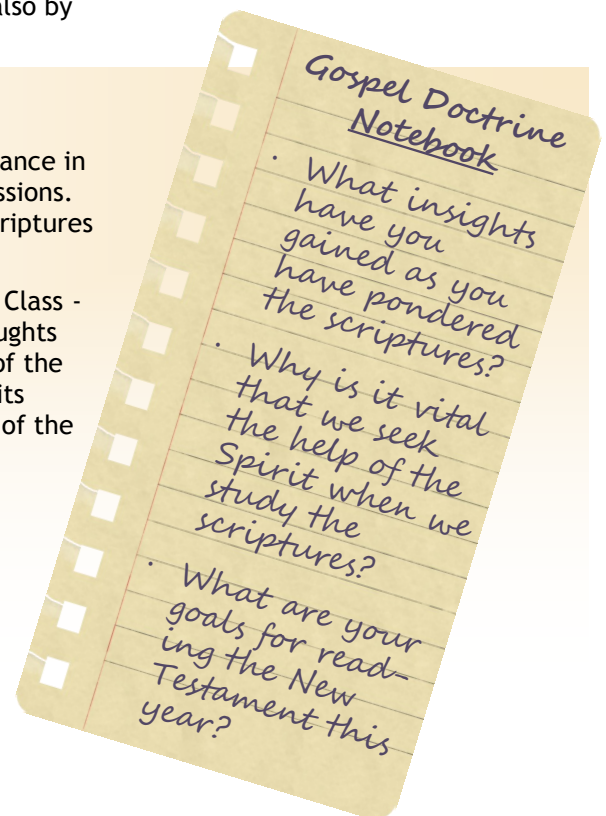 also by
ance in
ssions.
criptures
Class -
ughts
of the
its
of the
Gospel Doctrine
Notebook
· What insights
have you
gained as you
have pondered
the scriptures?
· Why is it vital
that we seek
the help of the
Spirit when we
study the
scriptures?
· What are your
goals for read-
ing the New
Testament this
year?